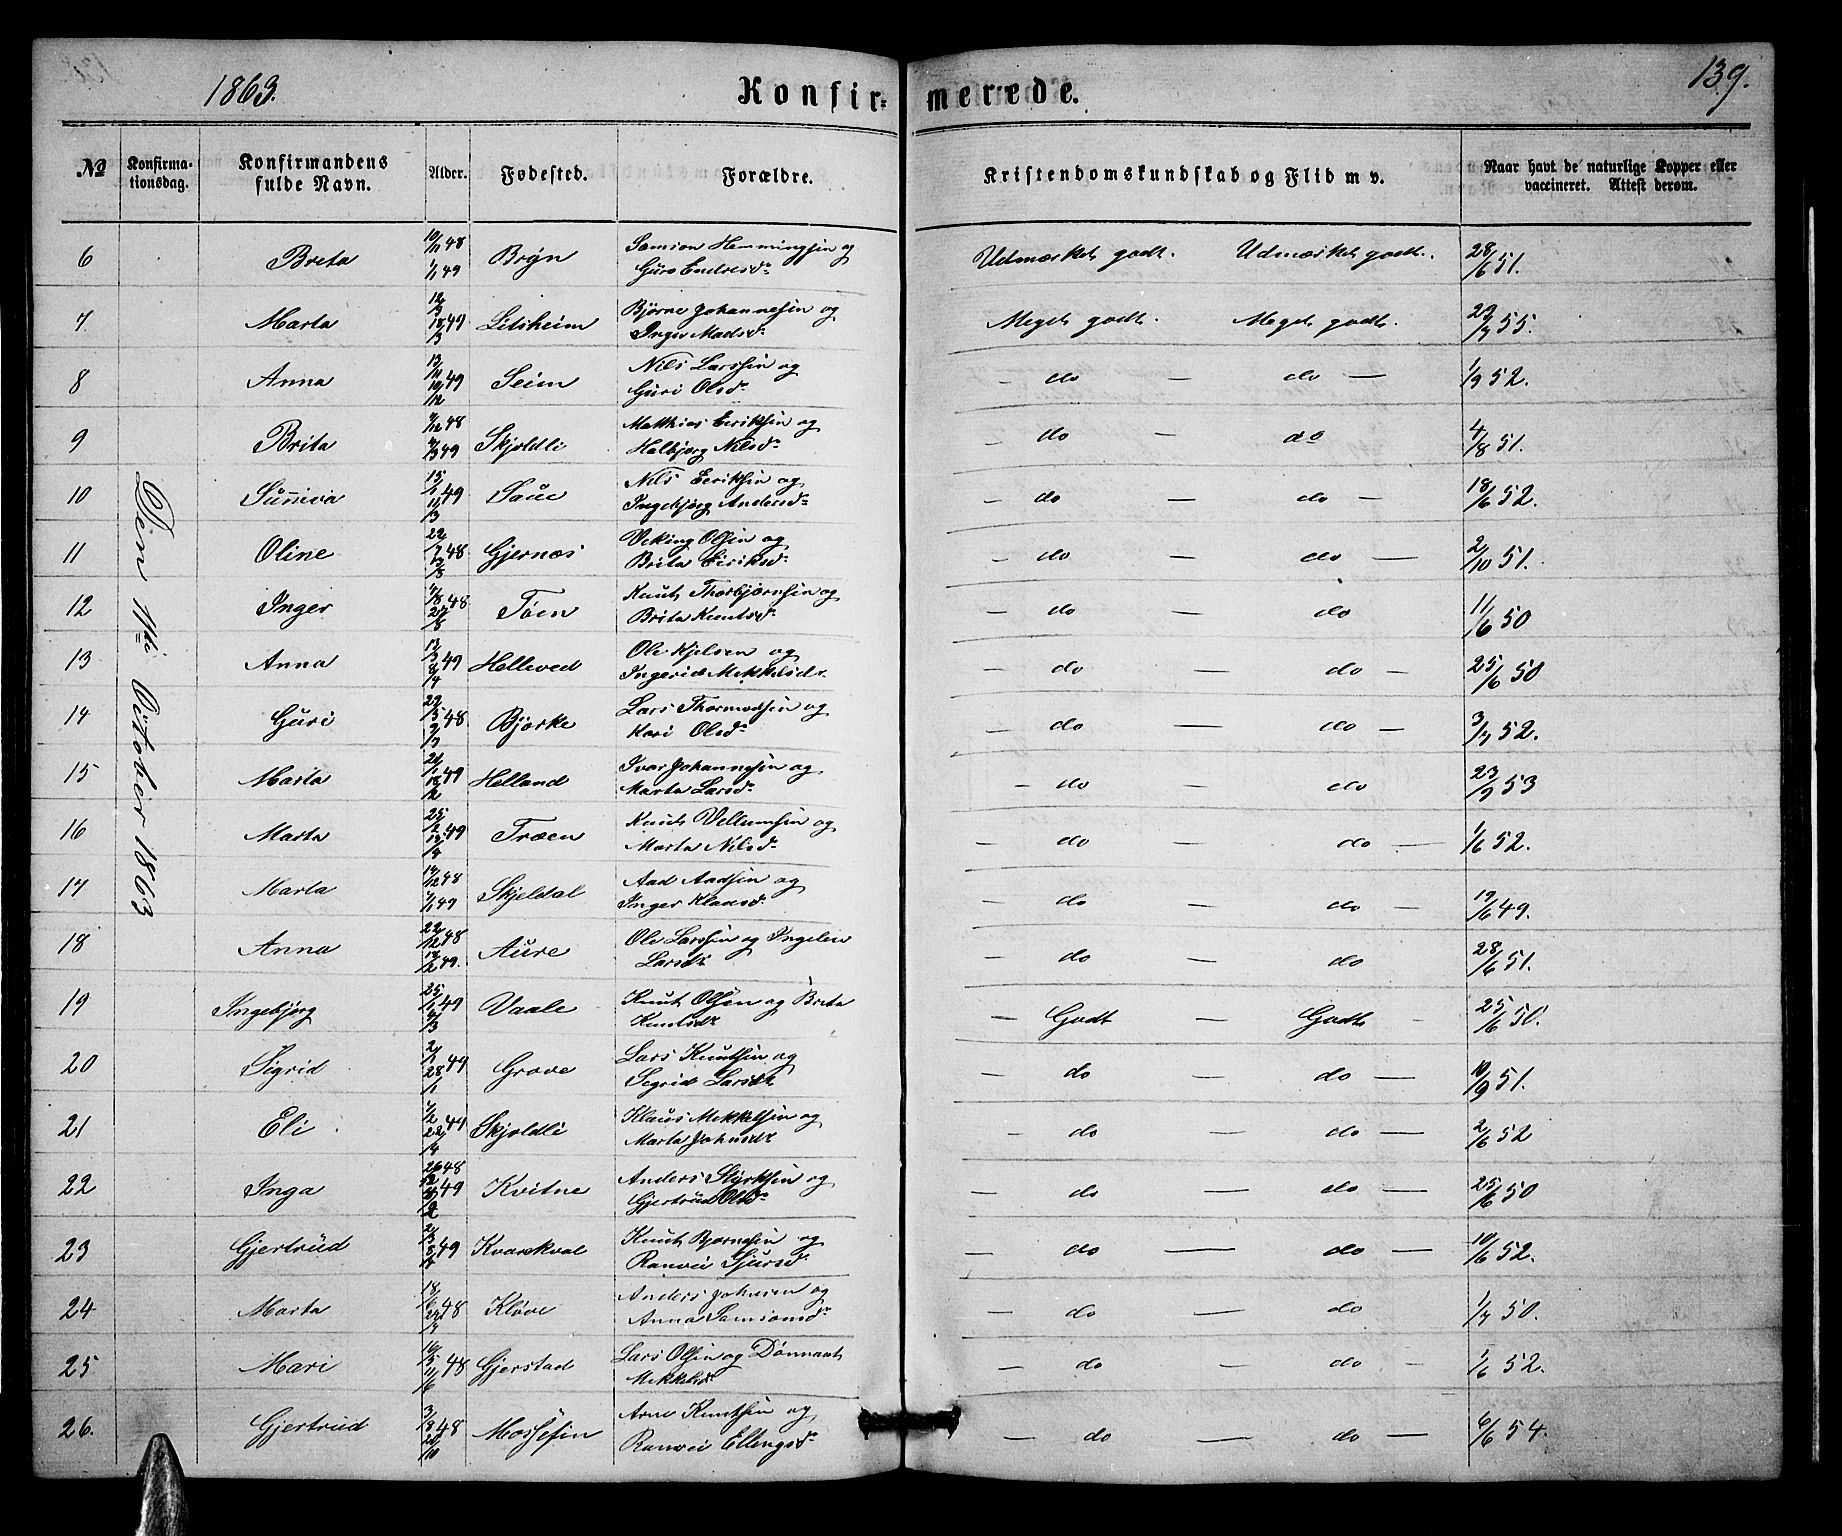 1863.
Konfir=
merede.
139.
No
Konfirma-
tionsdag.
Konfirmandens
fulde Navn.
Alder.
Fødested.
Forældre.
Kristendomskundskab og Flid m v.
Naar havt de naturlige Kopper eller
vaccineret. Attest derom.
Den 11te October 1863
6 Brita 10/11 48 1/1 49 Bryn Samson Hemmingsen og Guro Endresdr Udmærket godt. Udmærket godt. 28/6 51.
7. Marta 49 Litsheim Bjørne Johannesen og Inger Madsdr Meget godt. Meget godt. 55.
8 Anna 49 Seim Nils Larssen og Guri Olsdr - do - do - 1/9 52.
9 Brita 48 49 Skjoldli Matthias Eiriksen og Halbjørg Nilsdr - do - do 4/8 51.
10 Sunniva 15/1 49 11/3 Saue Nils Eiriksen og Ingebjørg Andersdr - do - do - 18/6 52.
11 Oline 48 Gjernes Viking Olsen og Brita Eiriksdr - do - do - 2/10 51.
12 Inger 48 Tøen Knut Thorbjørnsen og Brita Knutsdr - do - do 11/6 50
13 Anna 49 Helleved Ole Kjelsen og Ingerid Mikkelsdr - do - do - 25/6 50
14 Guri 48 Bjørke Lars Thormodsen og Kari Olsdr - do - do - 3/7 52.
15 Marta 49 Helland Ivar Johannesen og Marta Larsdr - do - do 53
16 Marta 49 Træen Knut Vellumsen og Marta Nilsdr - do - do - 1/6 52.
17 Marta 48 49 Skjeldal Aad Aadsen og Inger Klausdr - do - do - 19/6 49.
18 Anna 22/12 48 49. Aure Ole Larssen og Ingeleiv Larsdr - do - do 28/6 51.
19 Ingebjørg 25/1 49 Vaale Knut Olsen og Brita Knutsdr - Godt - Godt - 25/6 50.
20 Sigrid 49 Grove Lars Knutsen og Sigrid Larsdr - do - do - 10/9 51.
21 Eli 49 Skjoldli Klaus Mikkelsen og Marta Johnsdr - do - do - 2/6 52
22 Inga 48 49 Kvitne Anders Styrksen og Gjertrud Olsdr - do - do - 25/6 50
23 Gjertrud 49 Kvarekval Knut Bjørnesen og Ranvei Sjursdr - do - do - 10/6 52.
24 Marta 48 Kløve Anders Johnsen og Anna Samsonsdr - do - do - 1/7 50.
25 Mari 48 Gjerstad Lars Olsen og Dønnaut Mikkelsdr - do - do - 1/6 52.
26. Gjertrud 48 Mossefin Arne Knutsen og Ranvei Ellingsdr - do - do - 6/6 54.